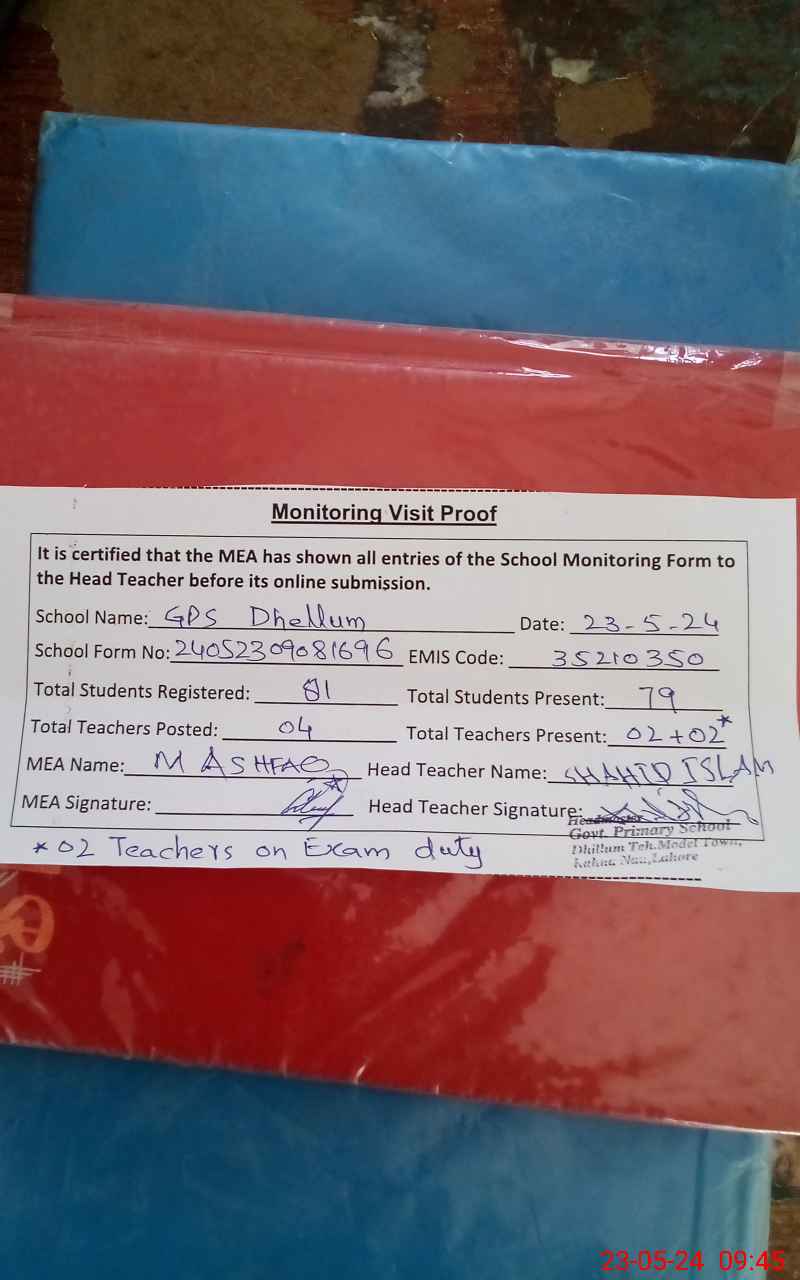 Monitoring Visit Proof
It is certified that the MEA has shown all entries of the School Monitoring Form to
the Head Teacher before its online submission.
School Name: GPS Dhellum Date: 23-5-24
School Form No: 24052309081696 EMIS Code: 35210350
Total Students Registered: 81 Total Students Present: 79
Total Teachers Posted: 04 Total Teachers Present: 02+02*
MEA Name: M ASHFAQ Head Teacher Name: SHAHID ISLAM
MEA Signature: Head Teacher Signature:
Headmaster
Govt. Primary School
Dhillum Teh. Model Town,
Kahna Nau, Lahore
*02 Teachers on Exam duty
23-05-24 09:45